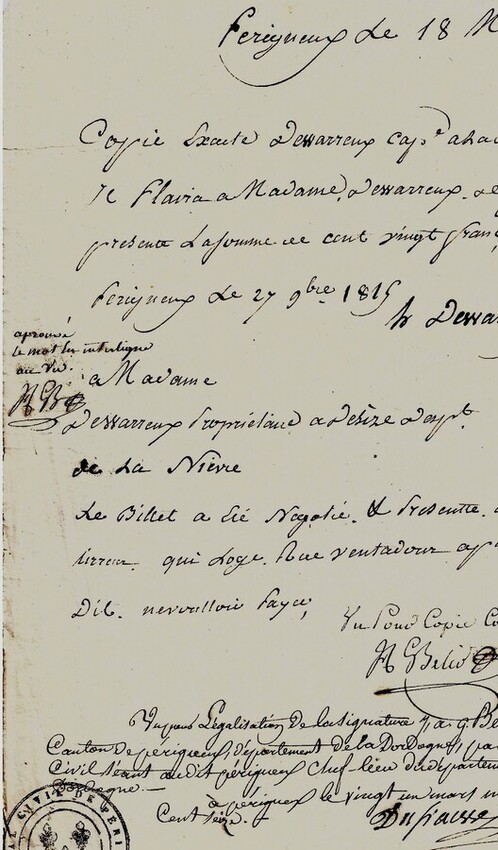 Perigueux Le 18 M
Copie Exacte Dewarreux cap.e
Je Flavia a Madame Dewarreux
presente La somme de cent vingt franc
Perigueux Le 27 9bre 1815
h Dewar
aprouvé
Le mot en interligne
au Vu.
a Madame
Dewarreux Propriétaire a Désize Dept.
de La Nièvre
Le Billet a Eté Négotié. & Presentte.
qui Loge Rue ventadour
Dit. nevoulloir Payer,
Vu Pour Copie Co
Vu pour Légalisation De la signature
Canton de perigueux, département de la Dordogne, par
Civil séant audit périgueux Chef-lieu du departem
Dordogne.
à périgueux le vingt un mars m
Cent seize.
CIVIL DE PERI